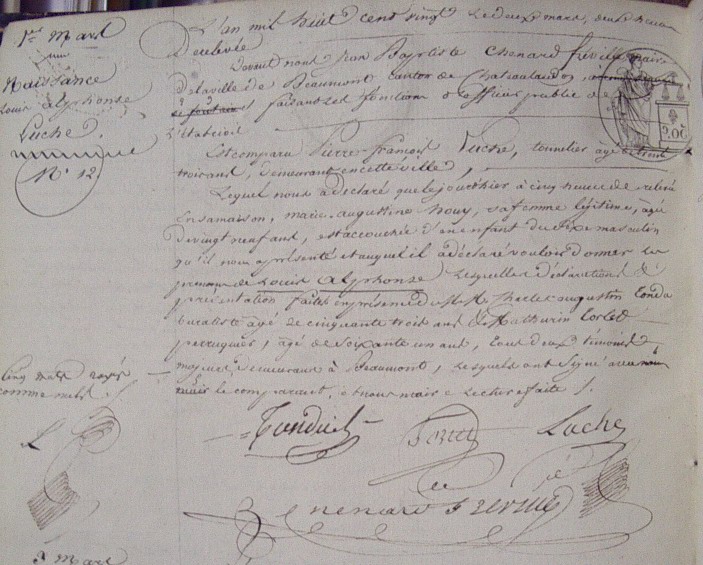 1er Mars
Naissance
Louis alphonse
Luché.
No 12
L'an mil huit cent vingt le deux mars, deux heures
De relevée
Devant nous Jean Baptiste Chenard fréville maire
De la ville de Beaumont canton de Chateaulandon
faisant les fonctions d'officier public de
L'état civil
Est comparu Pierre françois Luché, tonnelier agé de trente
trois ans, demeurant en cette ville,
Lequel nous a déclaré que le jour d'hier à cinq heures de relevée
en sa maison, marie augustine houy, sa femme légitime, agée
de vingt neuf ans, est accouchée d'un enfant du sexe masculin
qu'il nous a présenté et auquel il a déclaré vouloir donner les
prenoms de Louis Alphonse Lesquelles déclarations et
présentation faites en présence de M.M. augustin
buraliste agé de cinquante trois ans et Mathurin
perruquier, agé de soixante un ans, tous deux témoins
demeurant à Beaumont, Lesquels ont signé avec nous
maire le comparant, et nous maire Lecture faite.
Cinq mots rayés
comme nuls
L
Luché
Chenard Fréville
3 Mars
2.0C